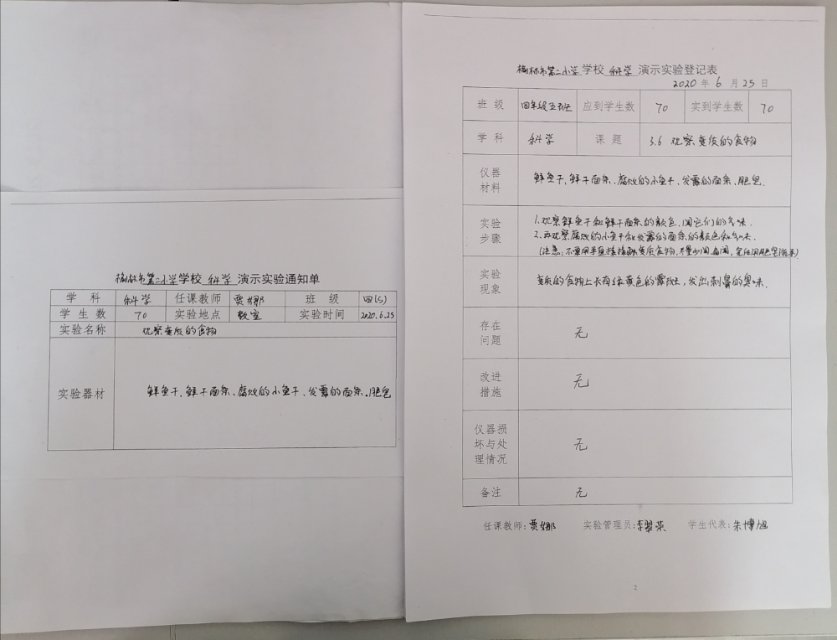 榆林市第二小学学校 科学 演示实验通知单
学科 科学 任课教师 贾娜 班级 四(5)
学生数 70 实验地点 教室 实验时间 2020.6.25
实验名称 观察变质的食物
实验器材 鲜鱼干、鲜干面条、腐败的小鱼干、发霉的面条、肥皂
榆林市第二小学学校 科学 演示实验登记表
2020年6月25日
班级 四年级五班 应到学生数 70 实到学生数 70
学科 科学 课题 3.6 观察变质的食物
仪器
材料
鲜鱼干、鲜干面条、腐败的小鱼干、发霉的面条、肥皂.
实验
步骤
1.观察鲜鱼干和鲜干面条的颜色,闻它们的气味.
2.再观察腐败的小鱼干和发霉的面条的颜色和气味.
实验
现象
变质的食物上长有绿黄色的霉斑,发出刺鼻的臭味.
存在
问题
无
改进
措施
无
仪器损
坏与处
理情况
无
备注 无
任课教师:贾娜 实验管理员: 学生代表:朱博旭
2